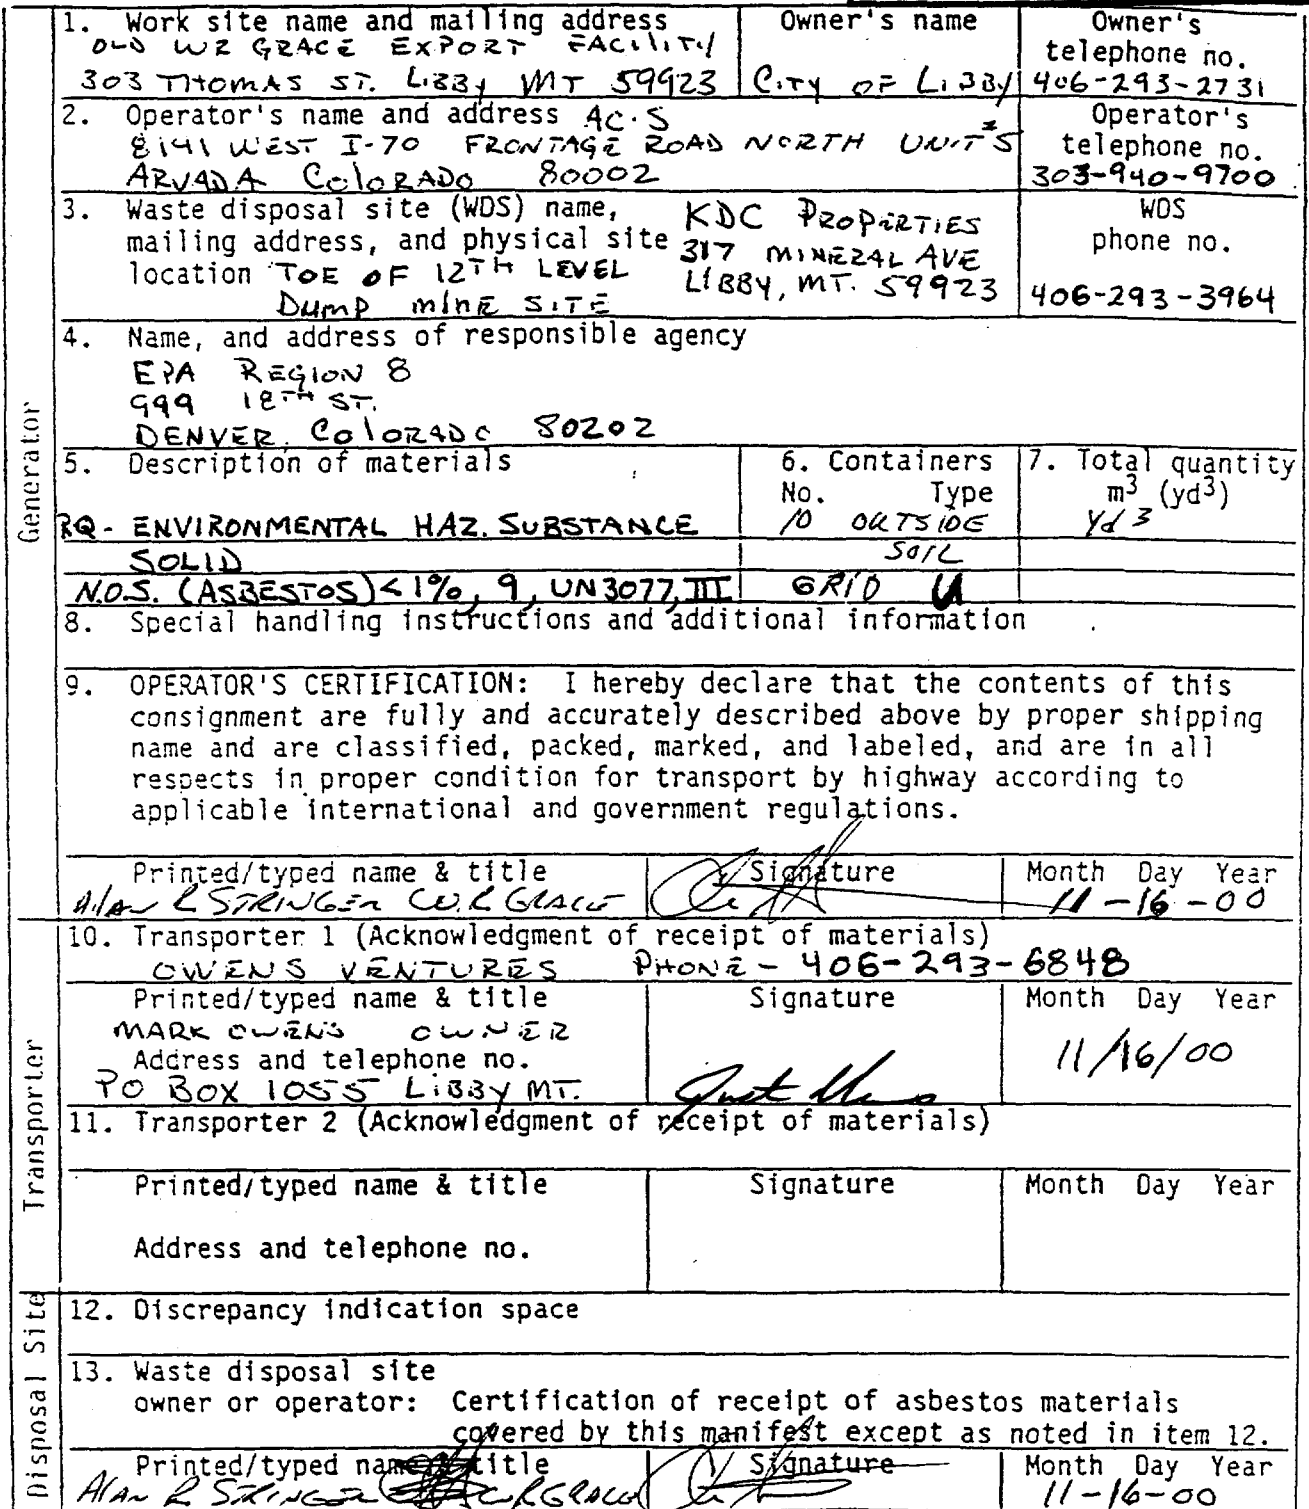 1. Work site name and mailing address
OLD WR GRACE EXPORT FACILITY
303 THOMAS ST. LIBBY MT 59923
Owner's name
CITY OF LIBBY
Owner's
telephone no.
406-293-2731
2. Operator's name and address AC.S
8141 WEST I-70 FRONTAGE ROAD NORTH UNIT #5
ARVADA COLORADO 80002
Operator's
telephone no.
303-940-9700
3. Waste disposal site (WDS) name,
mailing address, and physical site
location TOE OF 12TH LEVEL
DUMP MINE SITE
KDC PROPERTIES
317 MINERAL AVE
LIBBY, MT. 59923
WDS
phone no.
406-293-3964
4. Name, and address of responsible agency
EPA REGION 8
999 18TH ST.
DENVER, COLORADO 80202
Generator
5. Description of materials
RQ- ENVIRONMENTAL HAZ. SUBSTANCE
SOLID
N.O.S. (ASBESTOS) <1%, 9, UN3077, III
6. Containers
No. Type
10 OUTSIDE
SOIL
GRID U
7. Total quantity
m3 (yd3)
Yd3
8. Special handling instructions and additional information
9. OPERATOR'S CERTIFICATION: I hereby declare that the contents of this
consignment are fully and accurately described above by proper shipping
name and are classified, packed, marked, and labeled, and are in all
respects in proper condition for transport by highway according to
applicable international and government regulations.
Printed/typed name & title
Alan R STRINGER W.R GRACE
Signature
Month Day Year
11-16-00
Transporter
10. Transporter 1 (Acknowledgment of receipt of materials)
OWENS VENTURES PHONE - 406-293-6848
Printed/typed name & title
MARK OWENS OWNER
Address and telephone no.
PO BOX 1055 LIBBY MT.
Signature
Month Day Year
11/16/00
11. Transporter 2 (Acknowledgment of receipt of materials)
Printed/typed name & title
Address and telephone no.
Signature
Month Day Year
Disposal Site
12. Discrepancy indication space
13. Waste disposal site
owner or operator: Certification of receipt of asbestos materials
covered by this manifest except as noted in item 12.
Printed/typed name & title
Alan R STRINGER W.R GRACE
Signature
Month Day Year
11-16-00